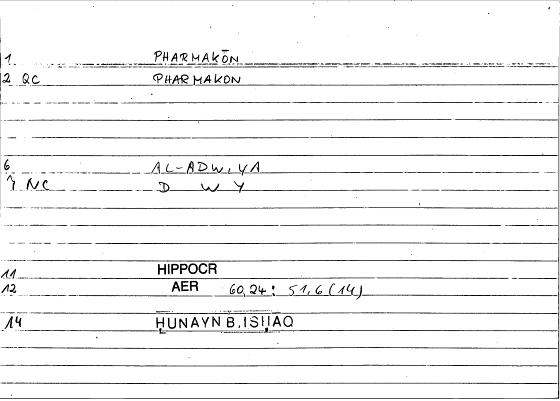 1. PHARMAKŌN
2 QC PHARMAKON
6 AL-ADWIYA
7 NC D W Y
11 HIPPOCR
12 AER 60,24: 51,6 (14)
14 ḤUNAYN B. ISḤAQ